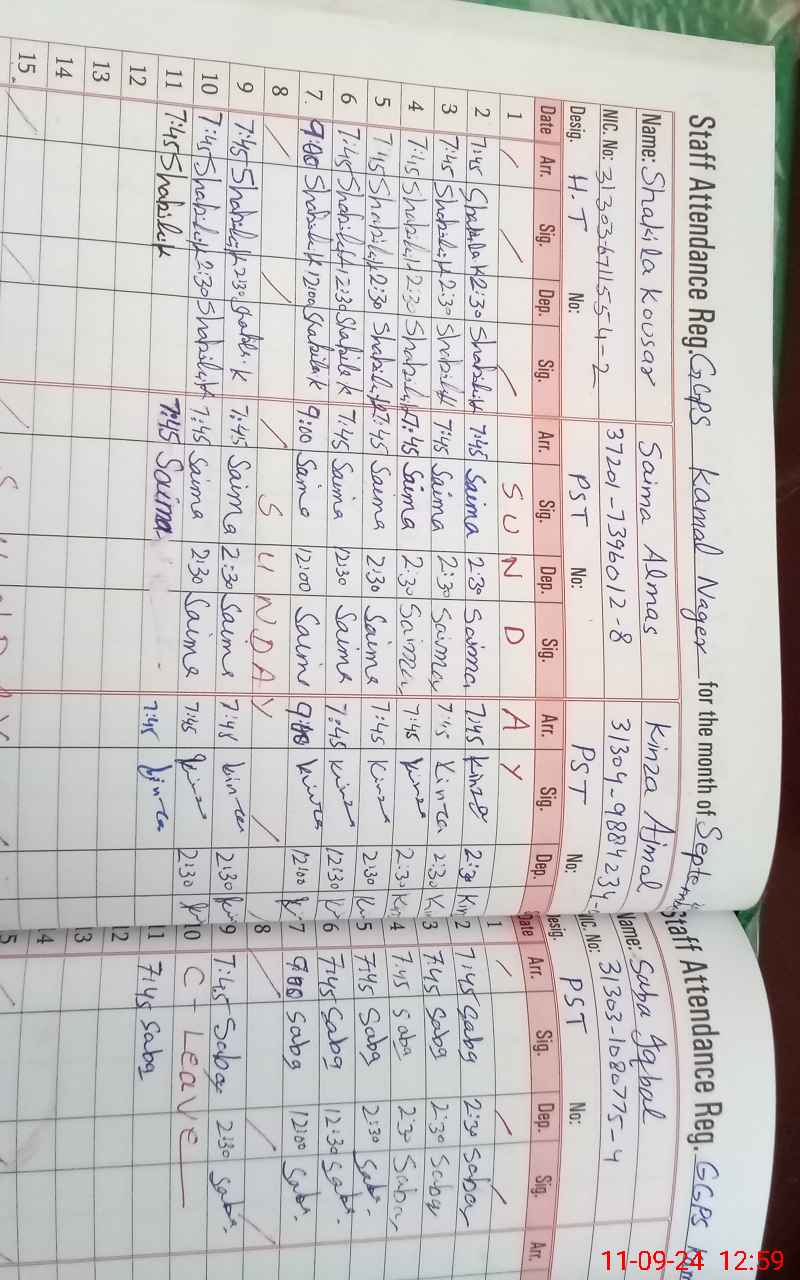 Staff Attendance Reg. GGPS Kamal Nager for the month of Septem
Name: Shakila Kousar Saima Almas Kinza Ajmal
NIC. No: 31303-6711554-2 37201-7396012-8 31304-9884234-
Desig. H.T No: PST No: PST No:
Date Arr. Sig. Dep. Sig. Arr. Sig. Dep. Sig. Arr. Sig. Dep.
1 SUNDAY
2 7:45 Shakila K 2:30 Shakila K 7:45 Saima 2:30 Saima 7:45 Kinza 2:30 Kin
3 7:45 Shakila K 2:30 Shakila K 7:45 Saima 2:30 Saima 7:45 Kinza 2:30 Ki
4 7:45 Shakila K 2:30 Shakila K 7:45 Saima 2:30 Saima 7:45 Kinza 2:30 Kin
5 7:45 Shakila K 2:30 Shakila K 7:45 Saima 2:30 Saima 7:45 Kinza 2:30 Ki
6 7:45 Shakila K 12:30 Shakila K 7:45 Saima 12:30 Saima 7:45 Kinza 12:30 Ki
7. 9:00 Shakila K 12:00 Shakila K 9:00 Saima 12:00 Saima 9:00 Kinza 12:00 Ki
8 SUNDAY
9 7:45 Shakila K 2:30 Shakila K 7:45 Saima 2:30 Saima 7:45 Kinza 2:30 Kin
10 7:45 Shakila K 2:30 Shakila K 7:45 Saima 2:30 Saima 7:45 Kinza 2:30
11 7:45 Shakila K 7:45 Saima 7:45 Kinza
12
13
14
15
Staff Attendance Reg. GGPS Kam
Name: Saba Iqbal
NIC. No: 31303-1080775-4
Desig. PST No:
Date Arr. Sig. Dep. Sig. Arr.
1
2 7:45 Saba 2:30 Saba
3 7:45 Saba 2:30 Saba
4 7:45 Saba 2:30 Saba
5 7:45 Saba 2:30 Saba
6 7:45 Saba 12:30 Saba
7 9:00 Saba 12:00 Saba
8
9 7:45 Saba 2:30 Saba
10 C-Leave
11 7:45 Saba
12
13
14
5
11-09-24 12:59